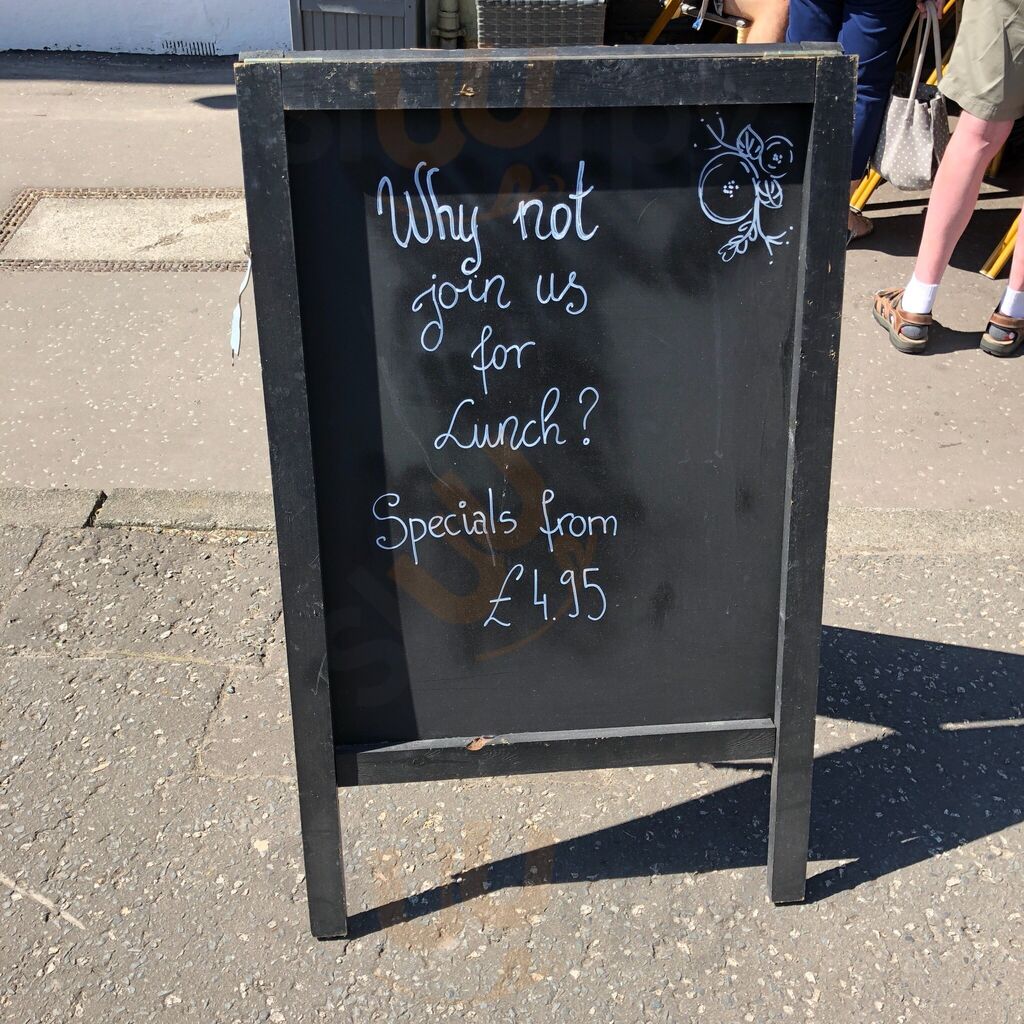 Why not
join us
for
Lunch?
Specials from
£4.95